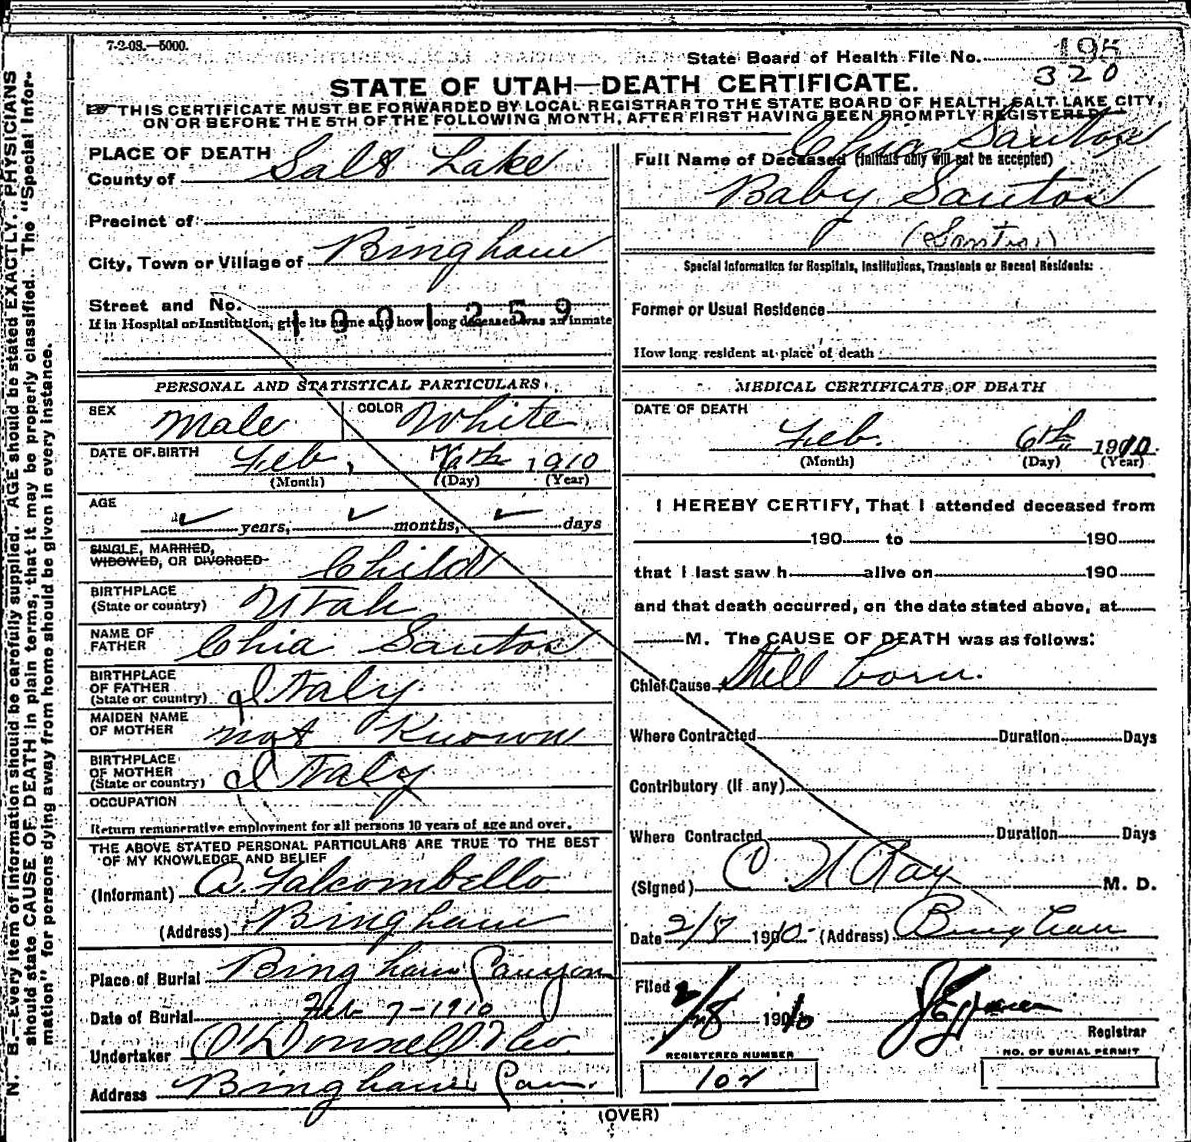 7-2-08.—5000.
State Board of Health File No. 195
320
STATE OF UTAH—DEATH CERTIFICATE.
THIS CERTIFICATE MUST BE FORWARDED BY LOCAL REGISTRAR TO THE STATE BOARD OF HEALTH, SALT LAKE CITY,
ON OR BEFORE THE 5TH OF THE FOLLOWING MONTH, AFTER FIRST HAVING BEEN PROMPTLY REGISTERED.
PLACE OF DEATH
County of Salt Lake
Precinct of
City, Town or Village of Bingham
Street and No.
1901259
If in Hospital or Institution, give its name and how long deceased was an inmate
Chia Santos
Full Name of Deceased (Initials only will not be accepted)
Baby Santos
(Santos)
Special Information for Hospitals, Institutions, Transients or Recent Residents:
Former or Usual Residence
How long resident at place of death
PERSONAL AND STATISTICAL PARTICULARS
SEX Male COLOR White
DATE OF BIRTH Feb, 1910
(Month) (Day) (Year)
AGE
years, months, days
SINGLE, MARRIED,
WIDOWED, OR DIVORCED Child
BIRTHPLACE
(State or country) Utah
NAME OF
FATHER Chia Santos
BIRTHPLACE
OF FATHER
(State or country) Italy
MAIDEN NAME
OF MOTHER not Known
BIRTHPLACE
OF MOTHER
(State or country) Italy
OCCUPATION
Return remunerative employment for all persons 10 years of age and over.
THE ABOVE STATED PERSONAL PARTICULARS ARE TRUE TO THE BEST
OF MY KNOWLEDGE AND BELIEF
(Informant) A. Falcombello
(Address) Bingham
Place of Burial Bingham Canyon
Date of Burial Feb 7-1910
Undertaker O'Donnell & Co
Address Bingham Can.
MEDICAL CERTIFICATE OF DEATH
DATE OF DEATH
Feb. 6th 1910
(Month) (Day) (Year)
I HEREBY CERTIFY, That I attended deceased from
190 to 190
that I last saw h alive on 190
and that death occurred, on the date stated above, at
M. The CAUSE OF DEATH was as follows:
Chief Cause Still born.
Where Contracted Duration Days
Contributory (if any)
Where Contracted Duration Days
(Signed) C. N Ray M. D.
Date 2/7 1910 (Address) Bingham
Filed 2/28 1910
Registrar
REGISTERED NUMBER
102
NO. OF BURIAL PERMIT
(OVER)
N. B.—Every item of information should be carefully supplied. AGE should be stated EXACTLY. PHYSICIANS
should state CAUSE OF DEATH in plain terms, that it may be properly classified. The "Special Infor-
mation" for persons dying away from home should be given in every instance.